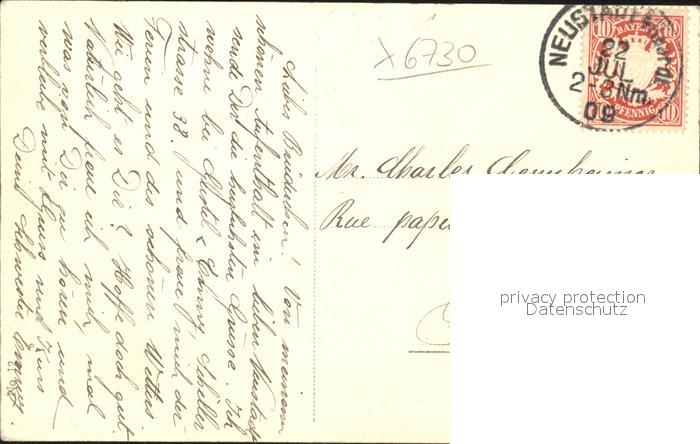 x 6730
NEUSTADT a. Haardt
22
JUL
2-3 Nm.
09
BAYERN
10 10
PFENNIG
Mr. Charles
Rue
privacy protection
Datenschutz
Liebes Brüderchen! Von meinem
schönen Aufenthalt im lieben Neustadt
sende Dir die herzlichsten Grüsse. Ich
wohne bei & Schiller
strasse 38. und freue mich der
Ferien und des schönen Wetters
Wie geht es Dir? Hoffe doch gut.
Natürlich freue ich mich, mal
was von Dir zu hören und
verbleibe mit Gruss und Kuss
Deine Schwester